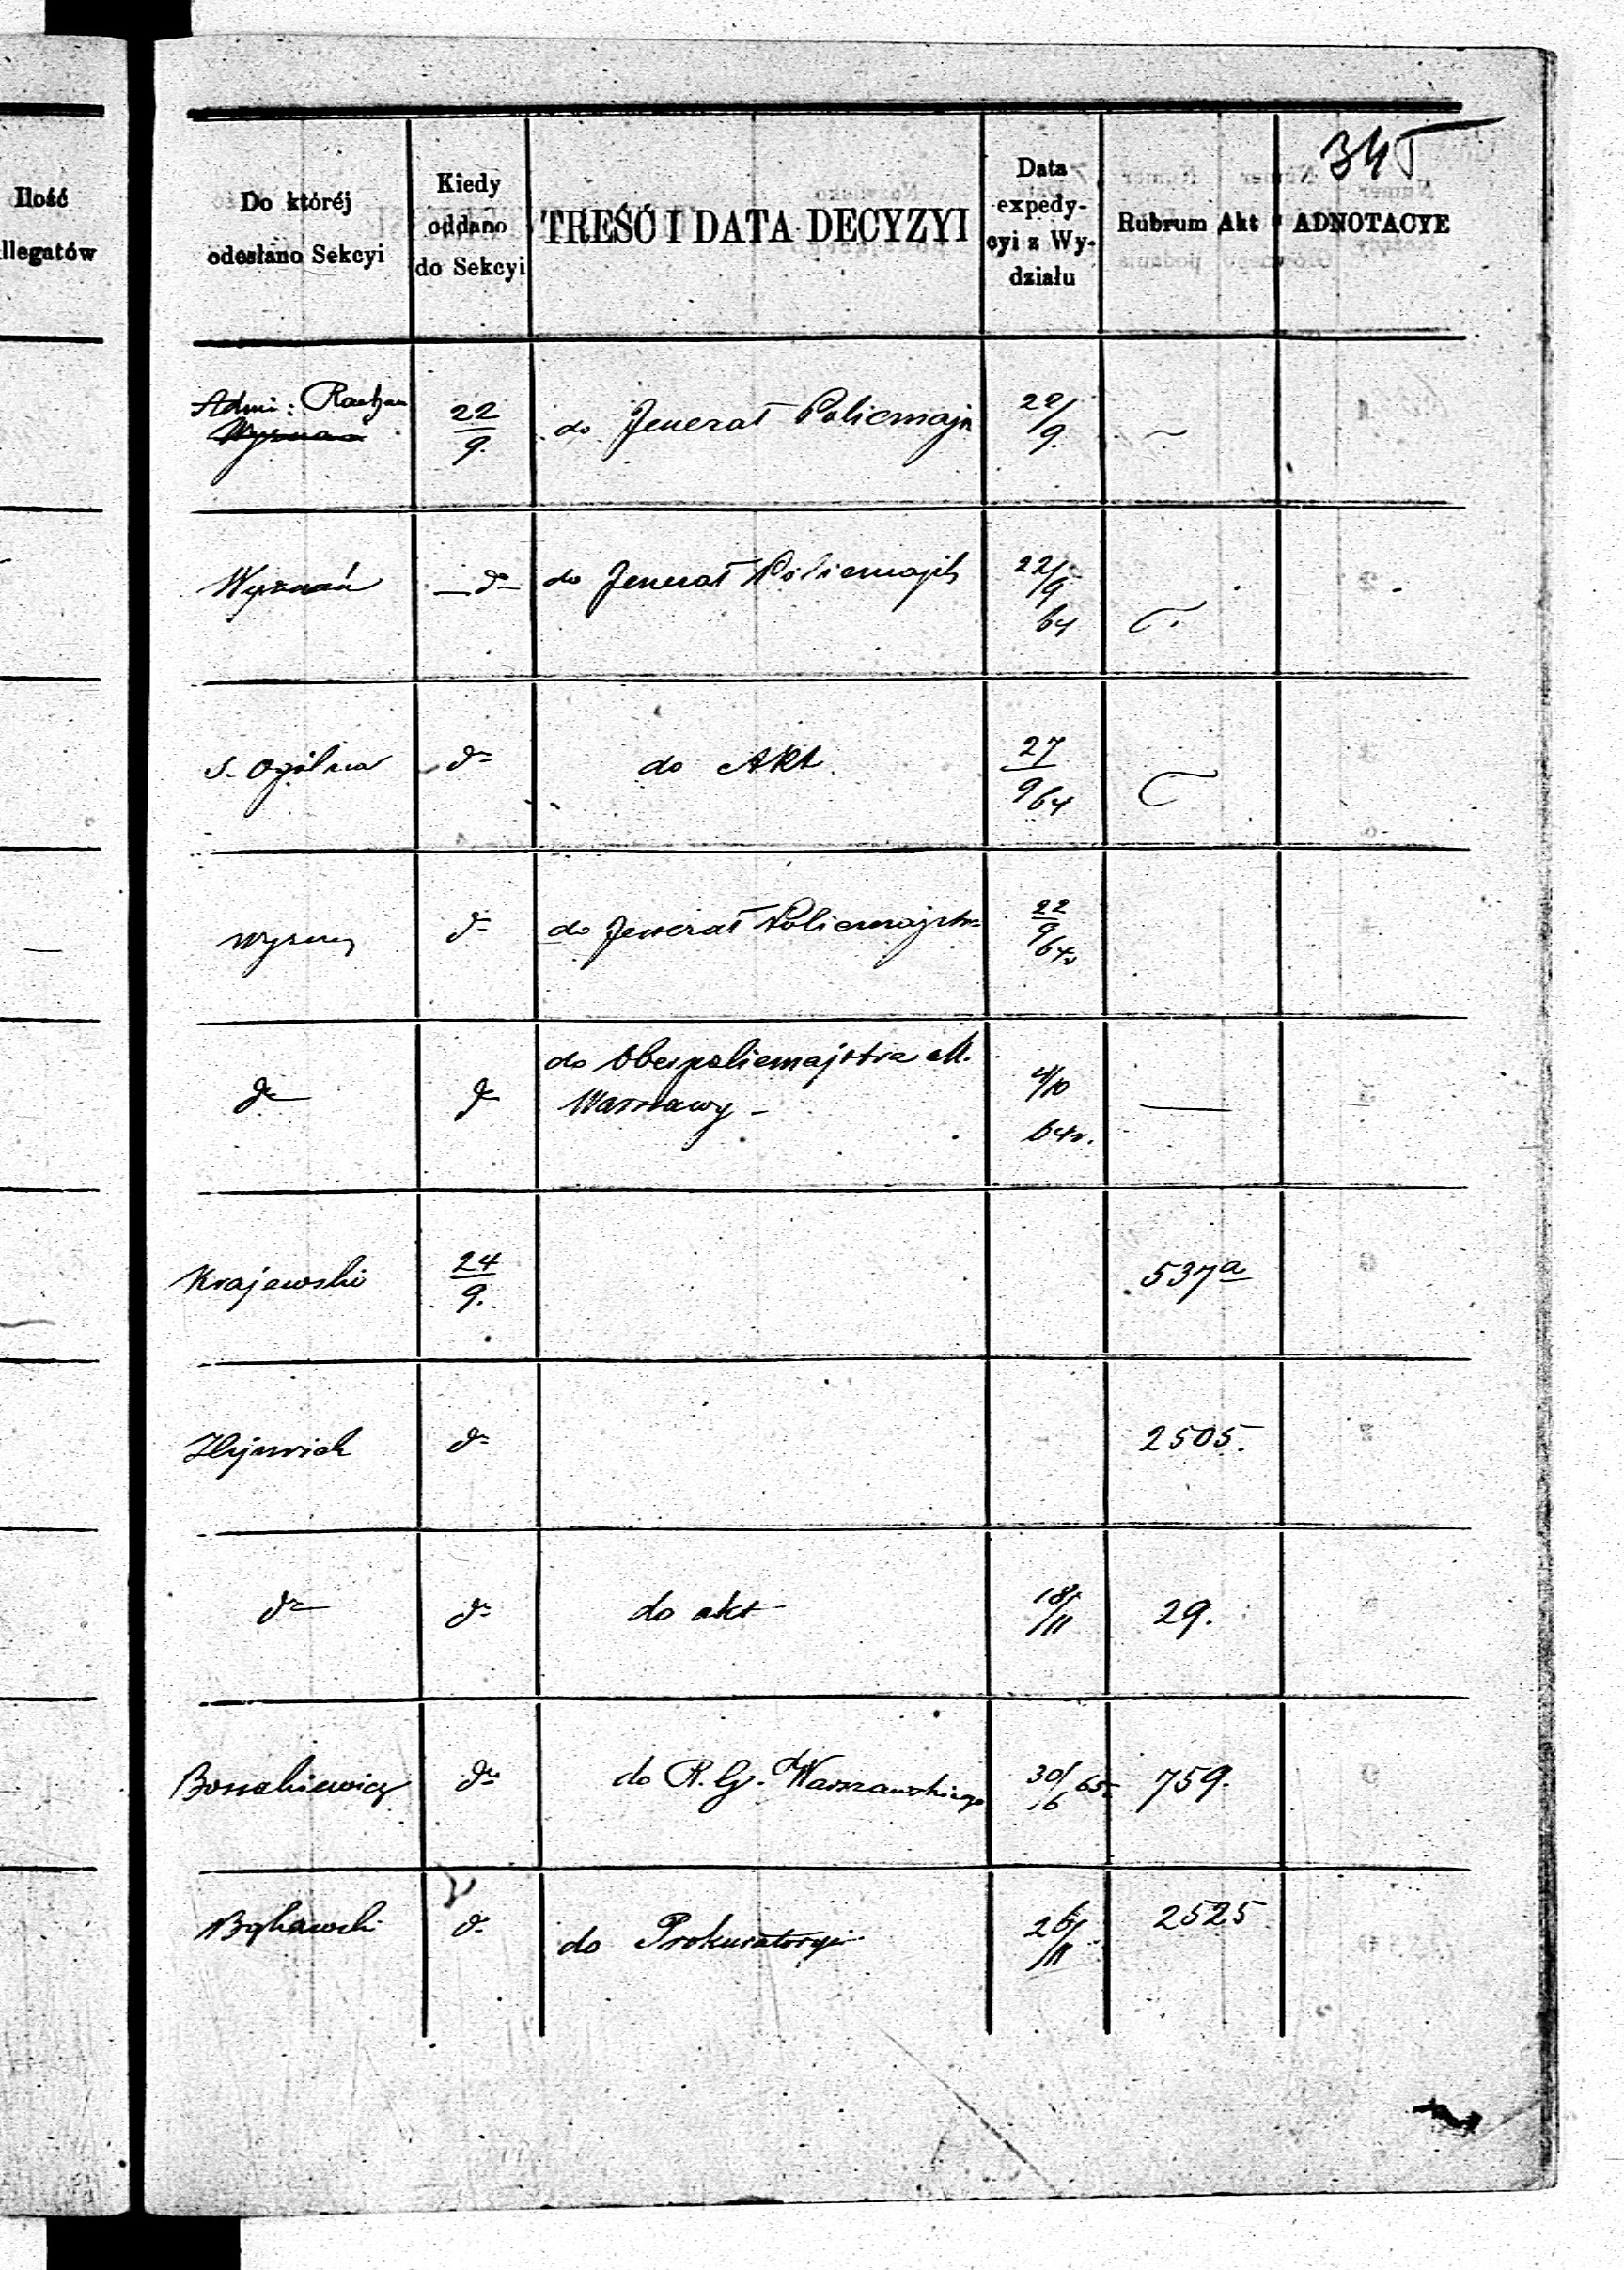 345
Ilość
llegatów
Do któréj
odesłano Sekcyi
Kiedy
oddano
do Sekcyi
TREŚĆ I DATA DECYZYI
Data
expedy-
cyi z Wy-
działu
Rubrum Akt
ADNOTACYE
Admi:
22/9. do Jenerał Policmajs 22/9.
Wyznań — do — do Jenerał Policmajst 22/9 64
S. Ogólna do do Akt 27/9 64
Wyzn do do Jenerał Policmajstra 22/9 64r
do do do Oberpolicmajstra M.
Warszawy — 4/10 64r. —
Krajewski 24/9. 537a
do 2505.
do do do akt 18/11 29.
do do R. G. Warszawskiego 30/6 65 759.
do do Prokuratoryi 26/11 2525